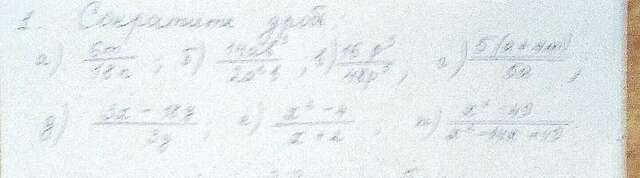 1. Сократите дробь
а) 6m/18n ; б) 14ab³/2a²b , в) 16p³/48p³ , г) 5(a+4m)/5a ,
д) 3x-18y/3y ; е) x²-4/x+2 , ж) x²-49/x²-14x+49